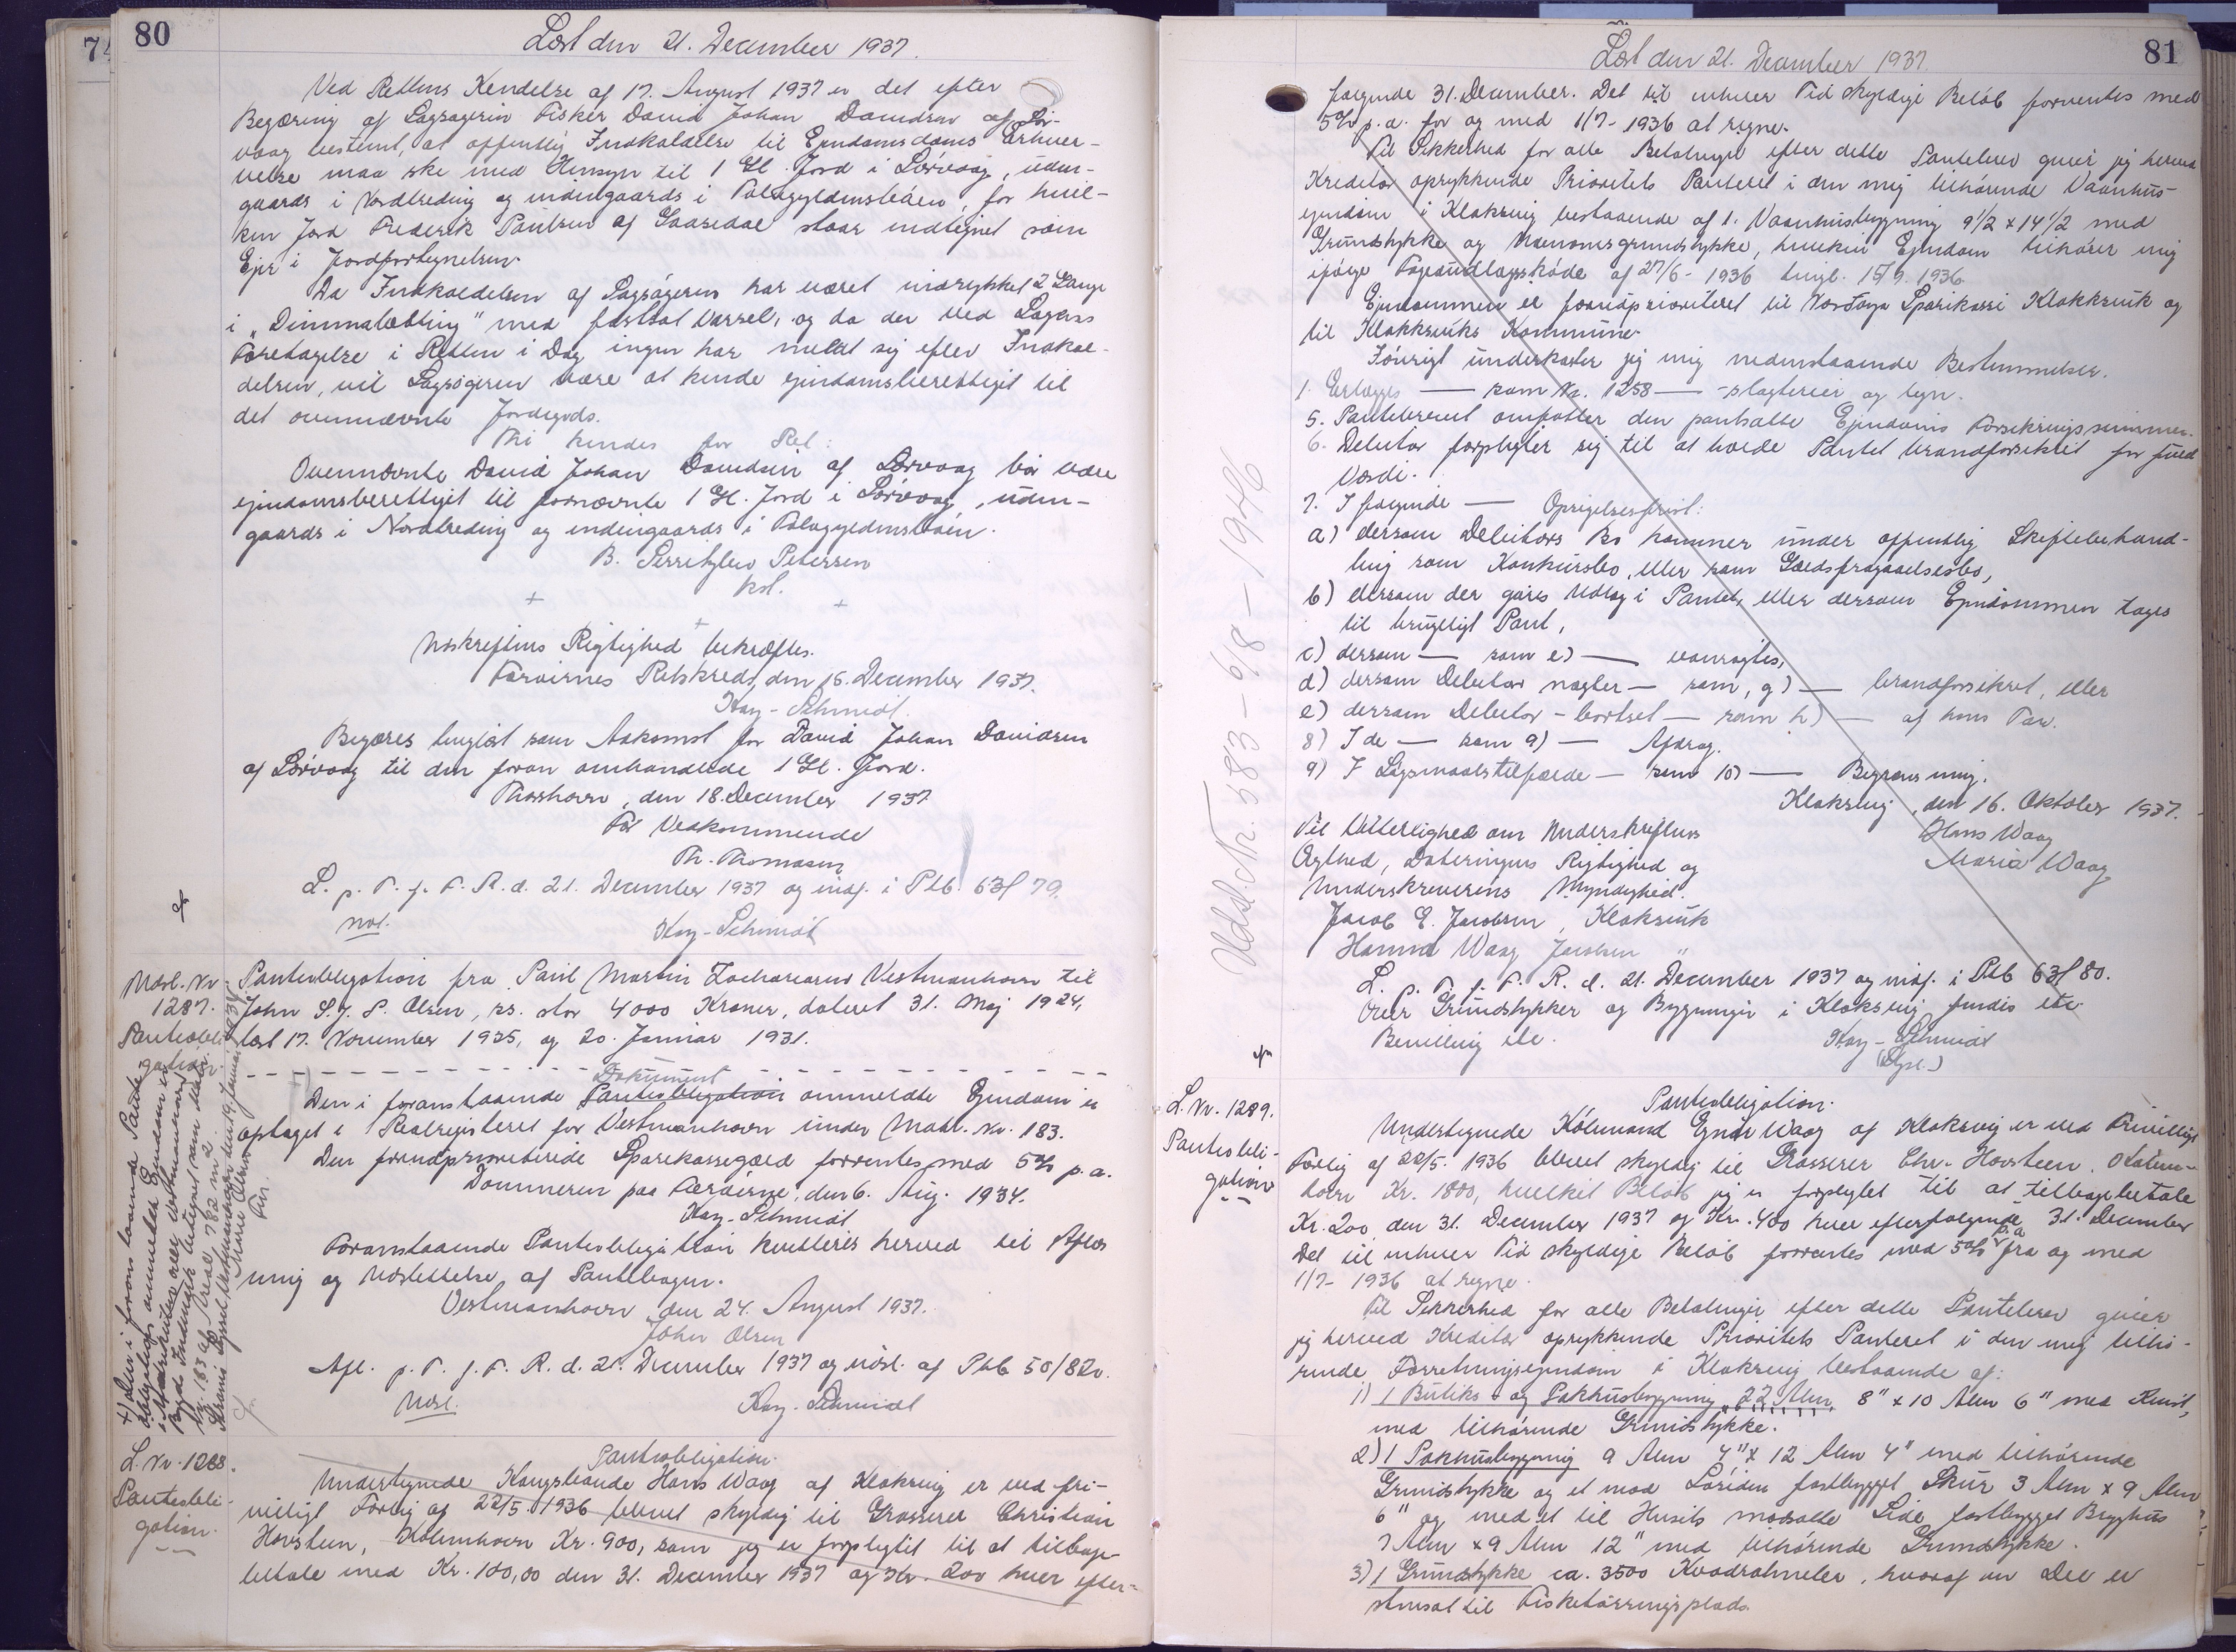 80
Læst den 21. December 1937.
Ved Rettens Kendelse af 17. August 1937 er det efter
Begæring af Sagsøgeren Fisker David Johan Davidsen af Sør-
vaag bestemt, at offentlig Indkaldelse til Ejendomsdoms Erhver-
velse maa ske med Hensyn til 1 Gl. Jord i Sørvaag, uden-
gaards i Nordtreding og indengaards i, for hvil-
ken Jord Frederik Poulsen af Gaasedal staar indtegnet som
Ejer i Jordfortegnelsen.
Da Indkaldelsen af Sagsøgeren har været indrykket 2 Gange
i "Dimmalætting" med fastsat Varsel, og da der ved Sagens
Foretagelse i Retten i Dag ingen har meldt sig efter Indkal-
delsen, vil Sagsøgeren være at kende ejendomsberettiget til
det ovennævnte Jordegods.
Thi kendes for Ret:
Ovennævnte David Johan Davidsen af Sørvaag bør være
ejendomsberettiget til fornævnte 1 Gl. Jord i Sørvaag, uden-
gaards i Nordtreding og indengaards i
B. Serritzlew Petersen
kst.
Udskriftens Rigtighed bekræftes.
Færøernes Retskreds, den 16. December 1937.
Kay-Schmidt.
Begæres tinglæst som Adkomst for David Johan Davidsen
af Sørvaag til den foran omhandlede 1 Gl. Jord.
Thorshavn, den 18. December 1937
For Vedkommende
Th. Thomasen
L. p. T. f. F. R. d. 21. December 1937 og indf. i Ptb. 63f 79.
Kay-Schmidt
Udsl. Nr
1287.
Pantobli-
gation.
Pantobligation fra Poul Martin Zachariasens Vestmanhavn til
John S. J. S. Olsen, rs. stor 4000 Kroner, dateret 31. Maj 1924,
læst 17. November 1925, og 20. Januar 1931.
Dokument
Den i foranstaaende Pantobligation ommeldte Ejendom er
optaget i Realregisteret for Vestmanhavn under Matr. Nr. 183.
Den foranprioriterede Sparekassegæld forrentes med 5% p.a.
Dommeren paa Færøerne, den 6. Aug. 1934.
Kay-Schmidt
Foranstaaende Pantobligation kvitteres herved til Aflæs
ning og Udslettelse af Pantebogen.
Vestmanhavn den 24. August 1937.
John Olsen
Afl. p. T. f. F. R. d. 21. December 1937 og udsl. af Ptb 50/82v.
Udsl.
Kay-Schmidt
L. Nr. 1288.
Pantobli-
gation.
Pantobligation.
Undertegnede Kongsbonde Hans Waag af Klaksvig er ved fri-
villigt Forlig af 22/5. 1936 blevet skyldig til Grosserer Christian
Havsteen, København Kr. 900, som jeg er forpligtet til at tilbage-
betale med Kr. 100,00 den 31. December 1937 og Kr. 200 hver efter-
81
Læst den 21. December 1937.
følgende 31. December. Det til enhver Tid skyldige Beløb forrentes med
5% p.a. for og med 1/7-1936 at regne.
Til Sikkerhed for alle Betalinger efter dette Pantebrev giver jeg herved
Kreditor oprykkende Prioritets Panteret i den mig tilhørende Vaanhus-
ejendom i Klaksvig bestaaende af 1. Vaanhusbygning 9 1/2 x 14 1/2 med
Grundstykke og, hvilken Ejendom tilhører mig
ifølge Fogedudlægsskøde af 27/6-1936 tingl. 15/9. 1936.
Ejendommen er foranprioriteret til Norðoya Sparikassi Klakksvik og
til Klakksviks Kommune.
Iøvrigt underkaster jeg mig nedenstaaende Bestemmelser.
1. Erlægges — som Nr. 1258 — -slagteriei og lign.
5. Pantebrevet omfatter den pantsatte Ejendoms Forsikringssummer.
6. Debitor forpligter sig til at holde Pantet brandforsikret for fuld
Værdi.
7. I følgende — Opsigelsesfrist:
a) dersom Debitors Bo kommer under offentlig Skiftebehand-
ling som Konkursbo, eller som Gældsfragaaelsesbo,
b) dersom der gøres Udlæg i Pantet, eller dersom Ejendommen tages
til brugeligt Pant,
c) dersom — som e) — vanrøgtes,
d) dersom Debitor nægter — som, g) — brandforsikret, eller
e) dersom Debitor - bortset — som h) — af hans Tarv.
8) I de — som 9) — Afdrag.
9) I Søgsmaalstilfælde — som 10) — Begrænsning.
Klaksvig, den 16. Oktober 1937.
Hans Waag
Maria Waag
Til Vitterlighed om Underskriftens
Ægthed, Dateringens Rigtighed og
Underskriverens Myndighed.
Jacob E. Jacobsen, Klaksvik
Hanna Waag Jacobsen "
L. p. T. f. F. R. d. 21. December 1937 og indf. i Ptb 63f 80.
Over Grundstykker og Bygninger i Klaksvig findes ikke
Bevilling etc.
Kay-Schmidt
Udsl. Nr. 583-6/8-1946
L. Nr. 1289.
Pantobli-
gation
Pantobligation.
Undertegnede Købmand Ejnar Waag af Klaksvig er ved Frivilligt
Forlig af 22/5. 1936 blevet skyldig til Grosserer Chr. Havsteen, Køben-
havn Kr. 1800, hvilket Beløb jeg er forpligtet til at tilbagebetale
Kr. 200 den 31. December 1937 og Kr. 400 hver efterfølgende 31. December
Det til enhver Tid skyldige Beløb forrentes med 5% p.a. fra og med
1/7-1936 at regne.
Til Sikkerhed for alle Betalinger efter dette Pantebrev giver
jeg herved Kreditor oprykkende Prioritets Panteret i den mig tilhø-
rende Forretningsejendom i Klaksvig bestaaende af:
1) 1 Butiks- og Pakhusbygning 22 Alen, 8" x 10 Alen 6" med Kvist,
med tilhørende Grundstykke.
2) 1 Pakhusbygning 9 Alen 4" x 12 Alen 4" med tilhørende
Grundstykke og et mod Søsiden fastbygget Skur 3 Alen x 9 Alen
6" og med et til Husets modsatte Side fastbygget Bryghus
7 Alen x 9 Alen 12" med tilhørende Grundstykke.
3) 1 Grundstykke ca. 3500 Kvadratmeter, hvoraf en Del er
stensat til Fisketørringsplads